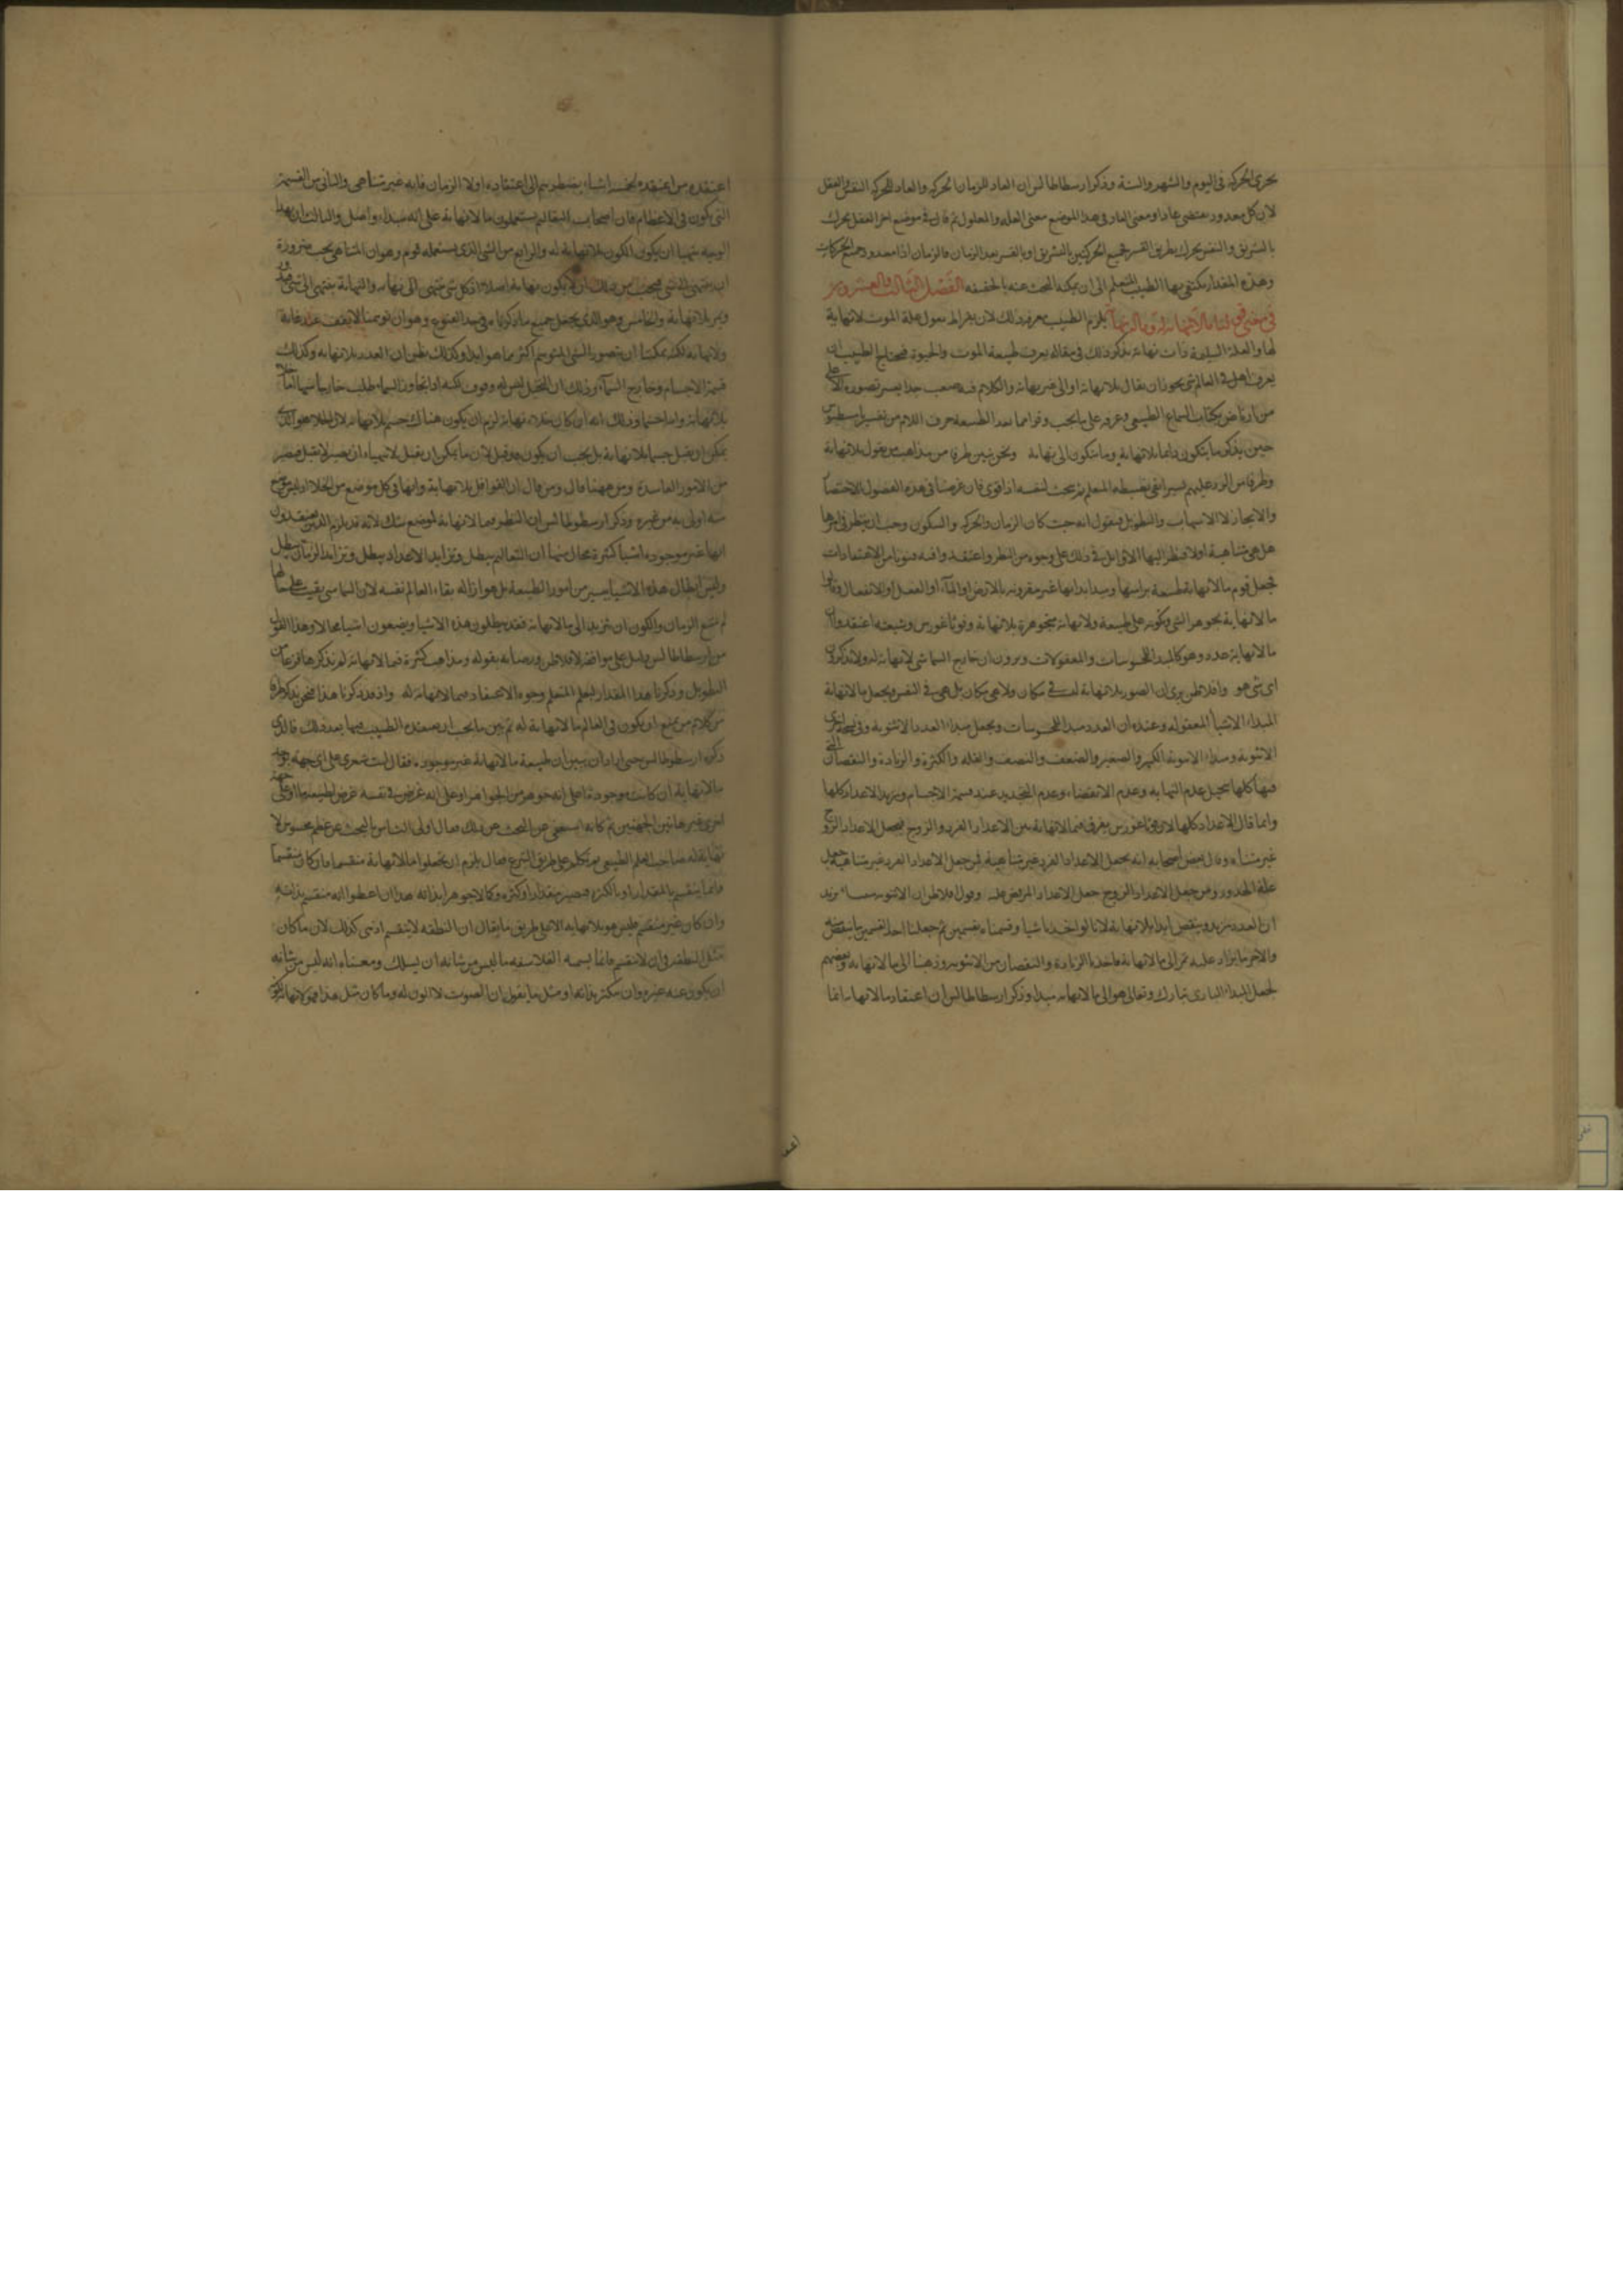 يجرى الحركة فى اليوم والشهر والسنة وذكر ارسطاطاليس ان العاد للزمان الحركة والعاد للحركة النفس والعقل
لان كل معدود يقتضى عادا ومعنى العاد فى هذا الموضع معنى العلة والمعلول ثم قال فى موضع اخر العقل يحرك
بالتشريق والنفس يحرك بطريق القسر فجميع الحركتين بالتشريق او بالقسر بعد الزمان فالزمان اذا معدود جميع الحركات
وهذه المقدار يكتفى بها الطبيب المتعلم الى ان يمكنه البحث عنه بالحقيقة الفصل الثالث والعشرون
فى معنى قولنا ما لا نهاية له وما له نهاية يلزم الطبيب معرفة ذلك لان بقراط يقول علة الموت لا نهاية
لها والعلة السليمة ذات نهاية يذكر ذلك فى مقالة يعرف طبيعة الموت والحيوة فيحتاج الطبيب ان
يعرف هل فى العالم شى يجوز ان يقال بلا نهاية او الى غير نهاية والكلام فيه صعب جدا يعسر تصوره الا على
من ارتاض بكتاب السماع الطبيعى وعرفه على ما يجب وقرا ما بعد الطبيعة حرف اللام من تفسير ثامسطيوس
حين يذكر ما يتكون دايما بلا نهاية وما يتكون الى نهاية ونحن نبين طرفا من مذاهب من يقول بلا نهاية
وطرفا من الرد عليهم يسيرا فى بسيطه المتعلم ثم يبحث لنفسه اذا قوى فان غرضنا فى هذه الفصول الاختصار
والايجاز لا الاسهاب والتطويل فنقول انه حيث كان الزمان والحركة والسكون وجب ان ينظر فى امرها
هل هى متناهية او لا فنظر اليها الاوائل فى ذلك على وجوه من النظر واعتقدوا فيه فنونا من الاعتقادات
فجعل قوم ما لا نهاية طبيعة براسها ومبدا بذاتها غير مقرونة بالارض او الماء او الفعل او الانفعال وقالوا
ما لا نهاية بجوهر الشى وكونه على طبيعة ولا نهاية متجوهرة بلا نهاية وفوثاغورس وشيعته اعتقدوا ان
ما لا نهاية حده وهو كالمبدا للمحسوسات والمعقولات ويرون ان خارج السما شى لا نهاية له ولا يذكرون
اى شى هو وافلاطن يرى ان الصور بلا نهاية ليست فى مكان ولا هى مكان بل هى فى النفس ويجعل ما لا نهاية
المبداء الاشياء المعقولة وعنده ان العدد مبدا المحسوسات ويجعل مبداء العدد الاثنوية وفى نسخة اخرى
الاثنوية ومبداء الاثنوية الكبير والصغير والضعف والنصف والقلة والكثرة والزيادة والنقصان التى
فيها كلها يتخيل عدم النهاية وعدم الانقضاء وعدم التحديد عند قسمة الاجسام وتزيد الاعداد كلها
وانما قال الاعداد كلها لان فوثاغورس يفرق فيما لا نهاية بين الاعداد الفرد والزوج فيجعل الاعداد الزوج
غير متناه وقال بعض اصحابه انه يجعل الاعداد الفرد غير متناهية
علة الحدود ومن جعل الاعداد الزوج جعل الاعداد وقول افلاطن ان الاثنوية يزيد
ان العدد يزيد وينقص ابدا بلا نهاية لانا لو اخذنا شيا وقسمناه بقسمين ثم جعلنا احد القسمين ينقص منه
والاخر ما يزاد عليه مر الى ما لا نهاية فاخذنا الزيادة والنقصان من الاثنوية وذهبنا الى ما لا نهاية وبعضهم
يجعل المبداء البارى تبارك وتعالى هو الى ما لا نهاية مبدا وذكر ارسطاطاليس ان اعتقاد ما لا نهاية انما
اعتقده من اعتقده لخمسة اشياء يضطرهم الى اعتقاده اولا الزمان فانه غير متناهى والثانى من القسمة
التى تكون فى الاعظام فان اصحاب التعاليم يستعملون ما لا نهاية على انه مبداء واصل والثالث ان هذا
الوجه يتهيا ان يكون الكون بلا نهاية له والرابع من الشى الذى يستعمله قوم وهو ان المتناهى يجب ضرورة
ان ينتهى الى شى فيجب من ذلك ان لا يكون نهاية اصلا اذ كل شى ينتهى الى نهاية والنهاية ينتهى الى شى اخر
ويمر بلا نهاية والخامس وهو الذى يجعل جميع ما ذكرنا من هذا النوع وهو ان توهمنا لا يقف عند غاية
ولا نهاية لكنه يمكننا ان نتصور الشى المتوهم اكثر مما هو ابدا وكذلك يظن ان العدد بلا نهاية وكذلك
قسمة الاجسام وخارج السماء وذلك ان التخيل ليس له وقوف لكنه اذا تجاوز السماء طلب خارجا منها خلاء
بلا نهاية واما اجساما وذلك انه ان كان خلاء بلا نهاية لزم ان يكون هناك جسم بلا نهاية لان الخلاء هو الذى
يمكن ان يقبل جسما بلا نهاية بل يجب ان يكون قد قبل لان ما يمكن ان يقبل لا يتهياء ان يصير لا يقبل فيصير
من الامور الفاسدة ومن ههنا قال من قال ان العوالم بلا نهاية وانها فى كل موضع من الخلاء اذ ليس موضع
منه اولى به من غيره وذكر ارسطوطاليس ان النظر فيما لا نهاية لموضع شك لانه قد يلزم الذين يعتقدون
انها غير موجودة اشيا كثيرة محال منها ان التعاليم يبطل وتزايد الاعداد يبطل وتزايد الزمان يبطل
وليس ابطال هذه الاشيا يسير من امور الطبيعة بل هو ازالة بقاء العالم نفسه لان السما متى بقيت على حالها
لم يمتنع الزمان والكون ان تزيد الى ما لا نهاية فقد يبطلون هذه الاشيا ويضعون اشيا محالا وهذا القول
من ارسطاطاليس دليل على موافقة لافلاطن ورضاه بقوله ومذاهب كثيرة فيما لا نهاية له لم نذكرها فزعا من
التطويل وذكرنا هذا المقدار ليعلم المتعلم وجوه الاعتقاد فيما لا نهاية له واذ قد ذكرنا هذا فنحن نذكر طرفا
من كلام من يمنع ان يكون فى العالم ما لا نهاية له ثم نبين ما يجب ان يعتقده الطبيب فيما بعد ذلك فالذى
ذكره ارسطوطاليس حين اراد ان يبين ان طبيعة ما لا نهاية غير موجودة فقال ليت شعرى على اى جهة توجد
ما لا نهاية ان كانت موجودة اعلى انه جوهر من الجواهر او على انه عرض فى نفسه عرض لطبيعة ما او على جهة
اخرى غير هاتين الجهتين ثم كانه استعفى من البحث عن ذلك فقال اولى الناس بالبحث عن عظم محسوس لا
نهاية له صاحب العلم الطبيعى ثم تكلم على طريق التبرع فقال يلزم ان يجعلوا ما لا نهاية منقسما فان كان منقسما
فانما ينقسم بالمقدار او بالكثرة فيصير مقدارا وكثرة وكالا جوهرا بذاته هذا ان اعطوا انه منقسم بذاته
وان كان غير منقسم فليس هو بلا نهاية الا على طريق ما يقال ان النطقة لا ينقسم اذ هى كذلك لان ما كان
مثل النطقة فى ان لا ينقسم فانما يسميه الفلاسفة ما ليس من شانه ان يسلك ومعناه انه ليس من شانه
ان يكون عنه غيره وان يكثر بذاته او مثل ما يقول ان الصوت لا لون له وما كان مثل هذا فهو لا نهاية
اعتقد